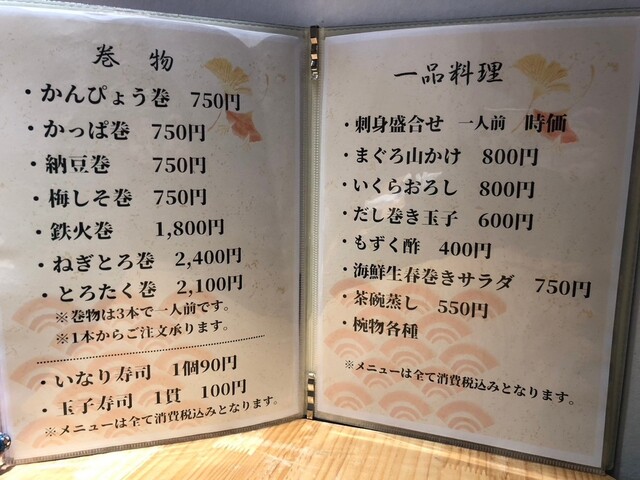 巻物
・かんぴょう巻 750円
・かっぱ巻 750円
・納豆巻 750円
・梅しそ巻 750円
・鉄火巻 1,800円
・ねぎとろ巻 2,400円
・とろたく巻 2,100円
※巻物は3本で一人前です。
※1本からご注文承ります。
・いなり寿司 1個90円
・玉子寿司 1貫 100円
※メニューは全て消費税込みとなります。
一品料理
・刺身盛合せ 一人前 時価
・まぐろ山かけ 800円
・いくらおろし 800円
・だし巻き玉子 600円
・もずく酢 400円
・海鮮生春巻きサラダ 750円
・茶碗蒸し 550円
・椀物各種
※メニューは全て消費税込みとなります。